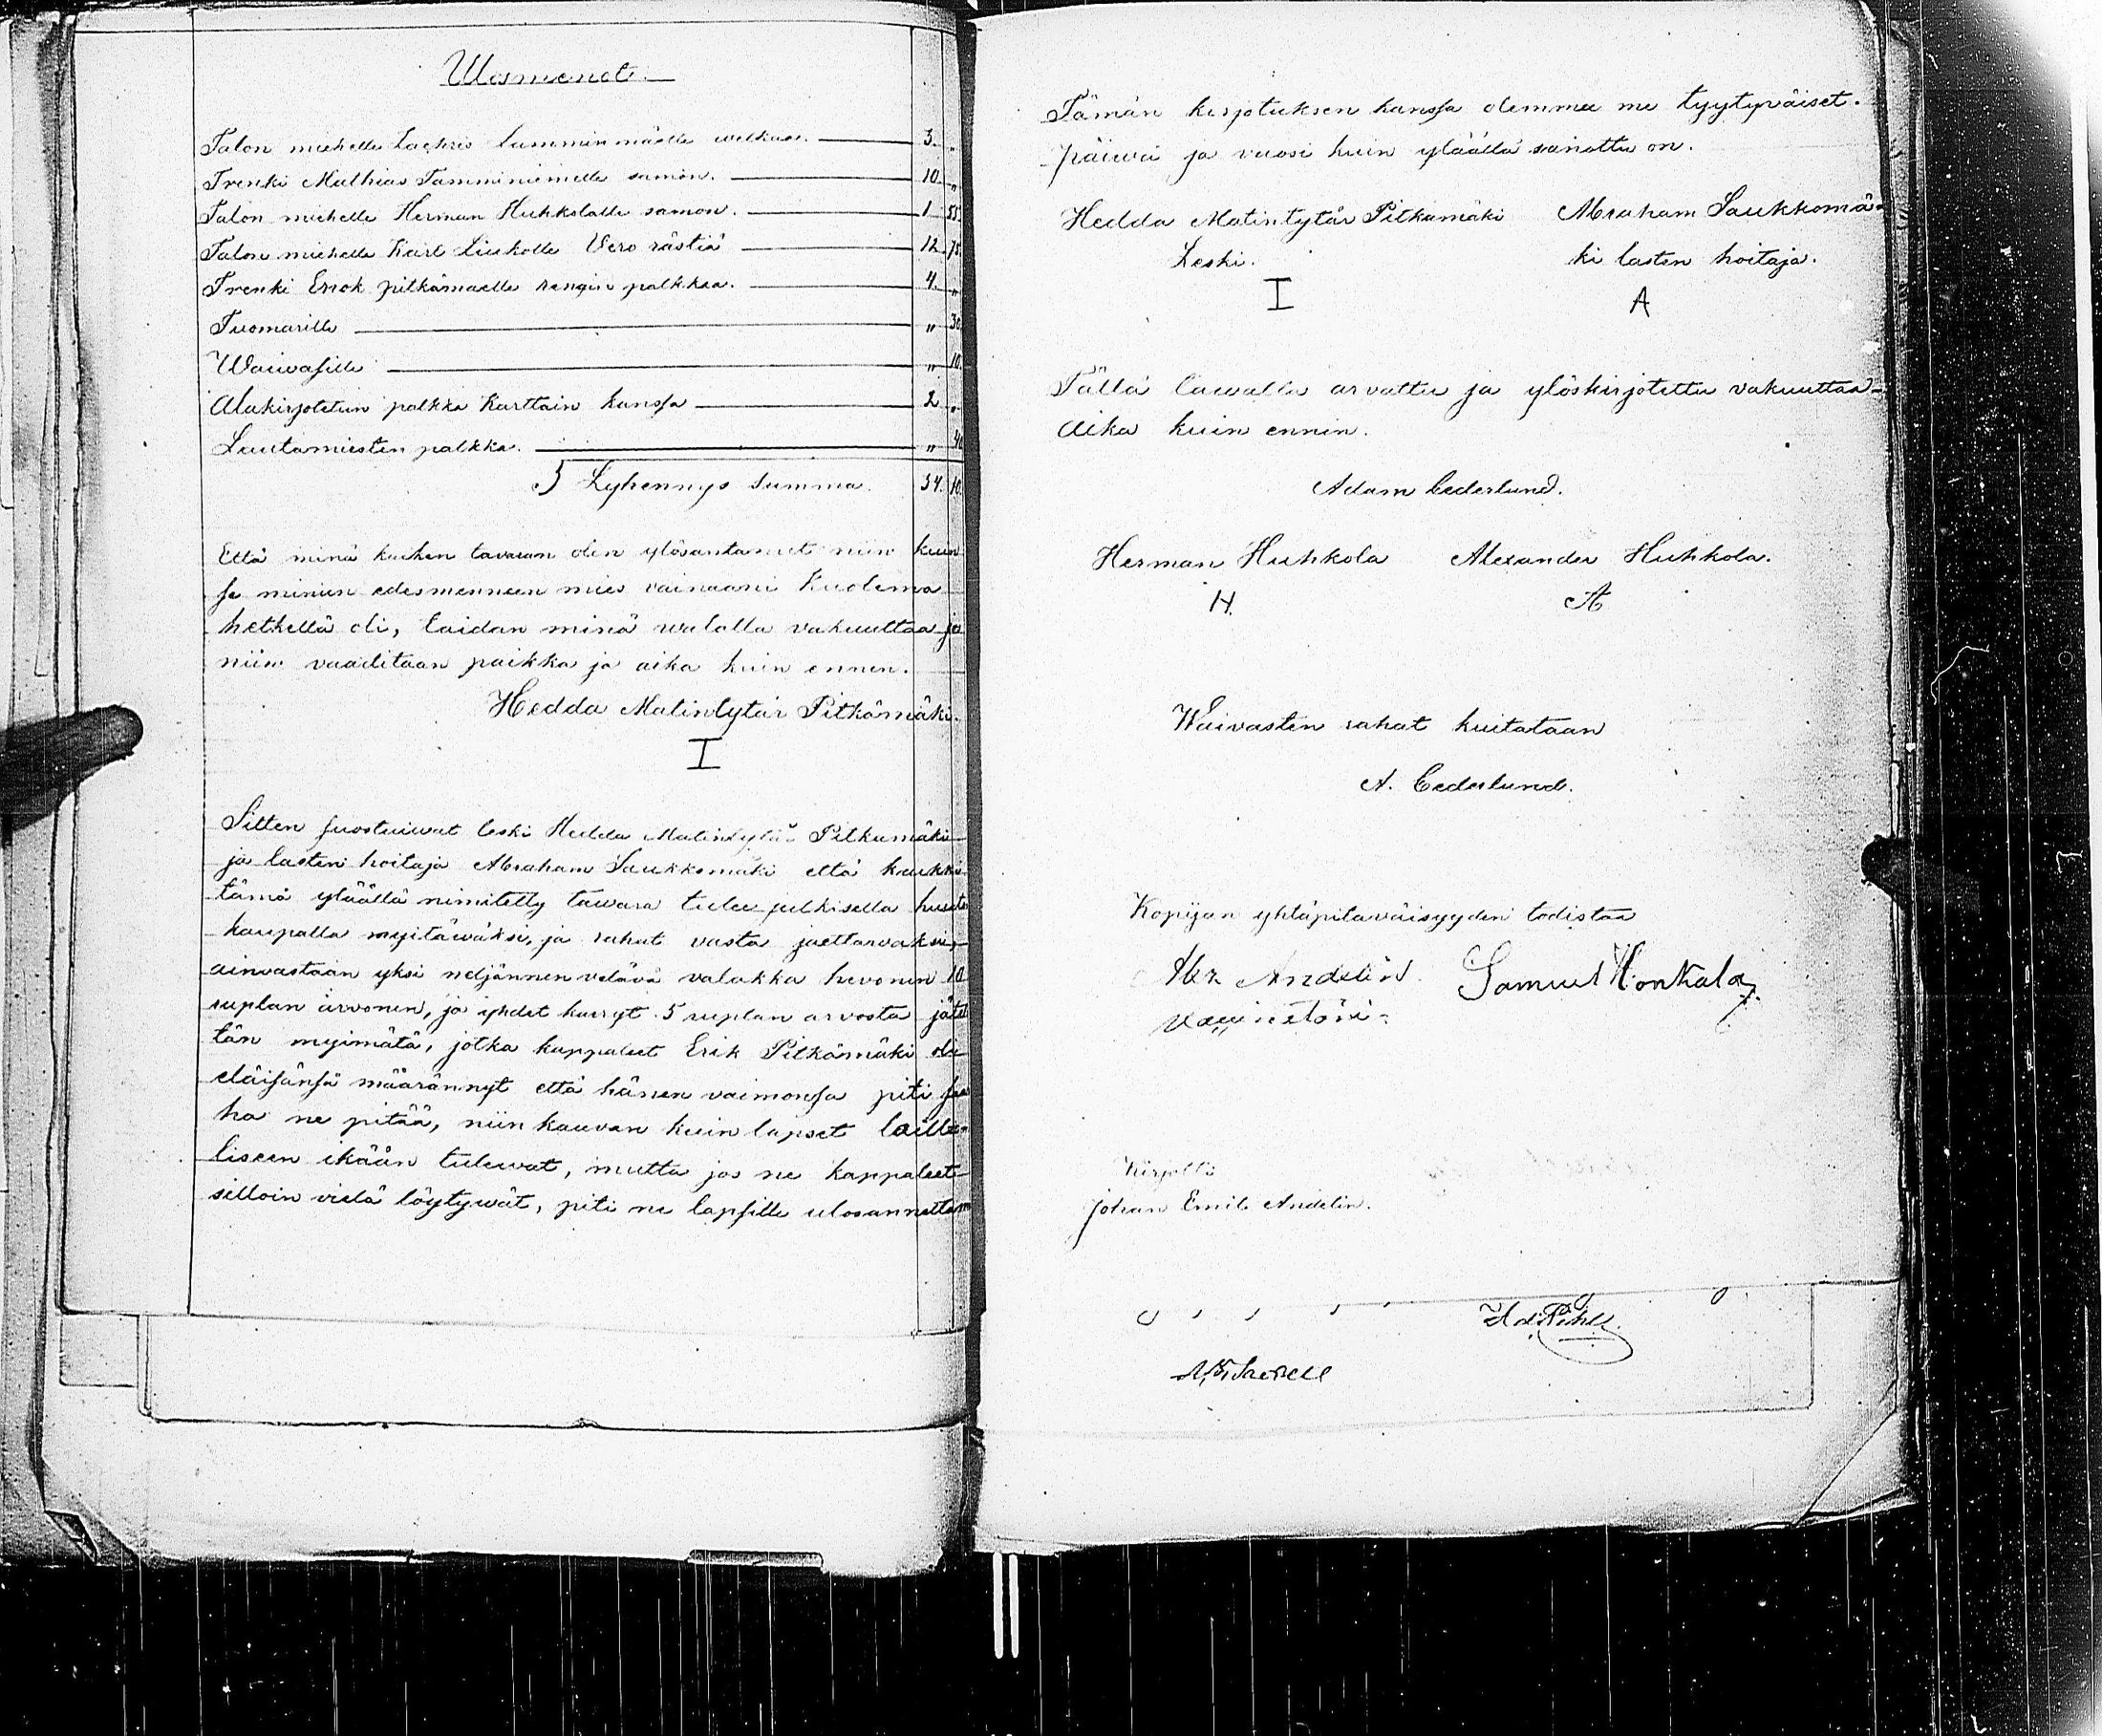 Ulosmenot.
Talon miehelle Zachris Lamminmäelle welkaa. 3. "
Trenki Mathias Tamminiemelle samon. 10. "
Talon miehelle Herman Huhkolalle samon. 1 55.
Talon miehelle Karl Liukolle Vero rästiä 12. 75.
Trenki Enok pitkämaelle rengin palkkaa. 4. "
Tuomarille " 30.
Waivasille " 10.
Alakirjotetun palkka Karttain kanssa 2 "
Lautamiesten palkka. " 40
Lyhennys Summa. 34. 10.
Että minä kaiken tavaran olen ylösantanut niin kuin
se minun edesmenneen mies vainaani Kuolema
hetkellä oli, taidan minä walalla vakuuttaa ja
niin vaaditaan paikka ja aika kuin ennen.
Hedda Matintytär Pitkämäki.
I
Sitten suostuiwat leski Hedda Matintytär Pitkämäki
ja lasten hoitaja Abraham Saukkomäki että kaikki
tämä ylläällä nimitetty tawara tulee julkisella huuto
kaupalla myitäwäksi, ja rahat vasta jaettavaksi,
ainoastaan yksi neljännen velävä valakka hevonen 10
ruplan arvonen, ja yhdet kärryt 5 ruplan arvosta jätet
tän myimätä, jotka kappaleet Erik Pitkämäki oli
eläisänsä määrännyt että hänen vaimonsa piti saa
ha ne pitää, niin kauvan kuin lapset laille
liseen ikään tulewat, mutta jos ne kappaleet
silloin vielä löytywät, piti ne lapsille ulosannettam
Tämän kirjotuksen kanssa olemma me tyytyväiset.
päiwä ja vuosi kuin ylläällä sanottu on.
Hedda Matintytär Pitkämäki Abraham Saukkomä-
Leski. ki lasten hoitaja.
I A
Tällä tawalla arvattu ja ylöskirjotettu vakuuttaa
Aika kuin ennin.
Adam Cederlund.
Herman Huhkola Alexander Huhkola.
H. A
Waivasten rahat kuitataan
A. Cederlund.
Kopijan yhtäpitäväisyyden todistaa
Andelin. Samuel Honkala
Johan Emil Andelin.